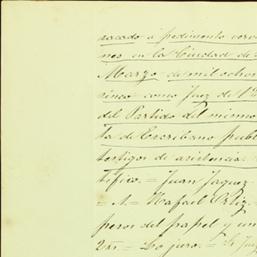 sacado á pedimento verv
nes en la Ciudad de
Marzo de mil ochoc
cinco como Juez de 1ª
del Partido del mismo
ta de Escribano publ
testigos de asistencia
tifico. = Juan Jaquez
= A = Rafael Ortiz
pesos del papel y un
Lo juro. =